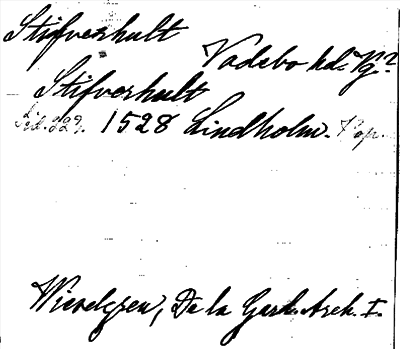 Stifverhult
Vadsbo hd. Vg?
Stifverhult
1528 Lindholm. Pap.
Wieselgren, De la Gard. Arch. I.